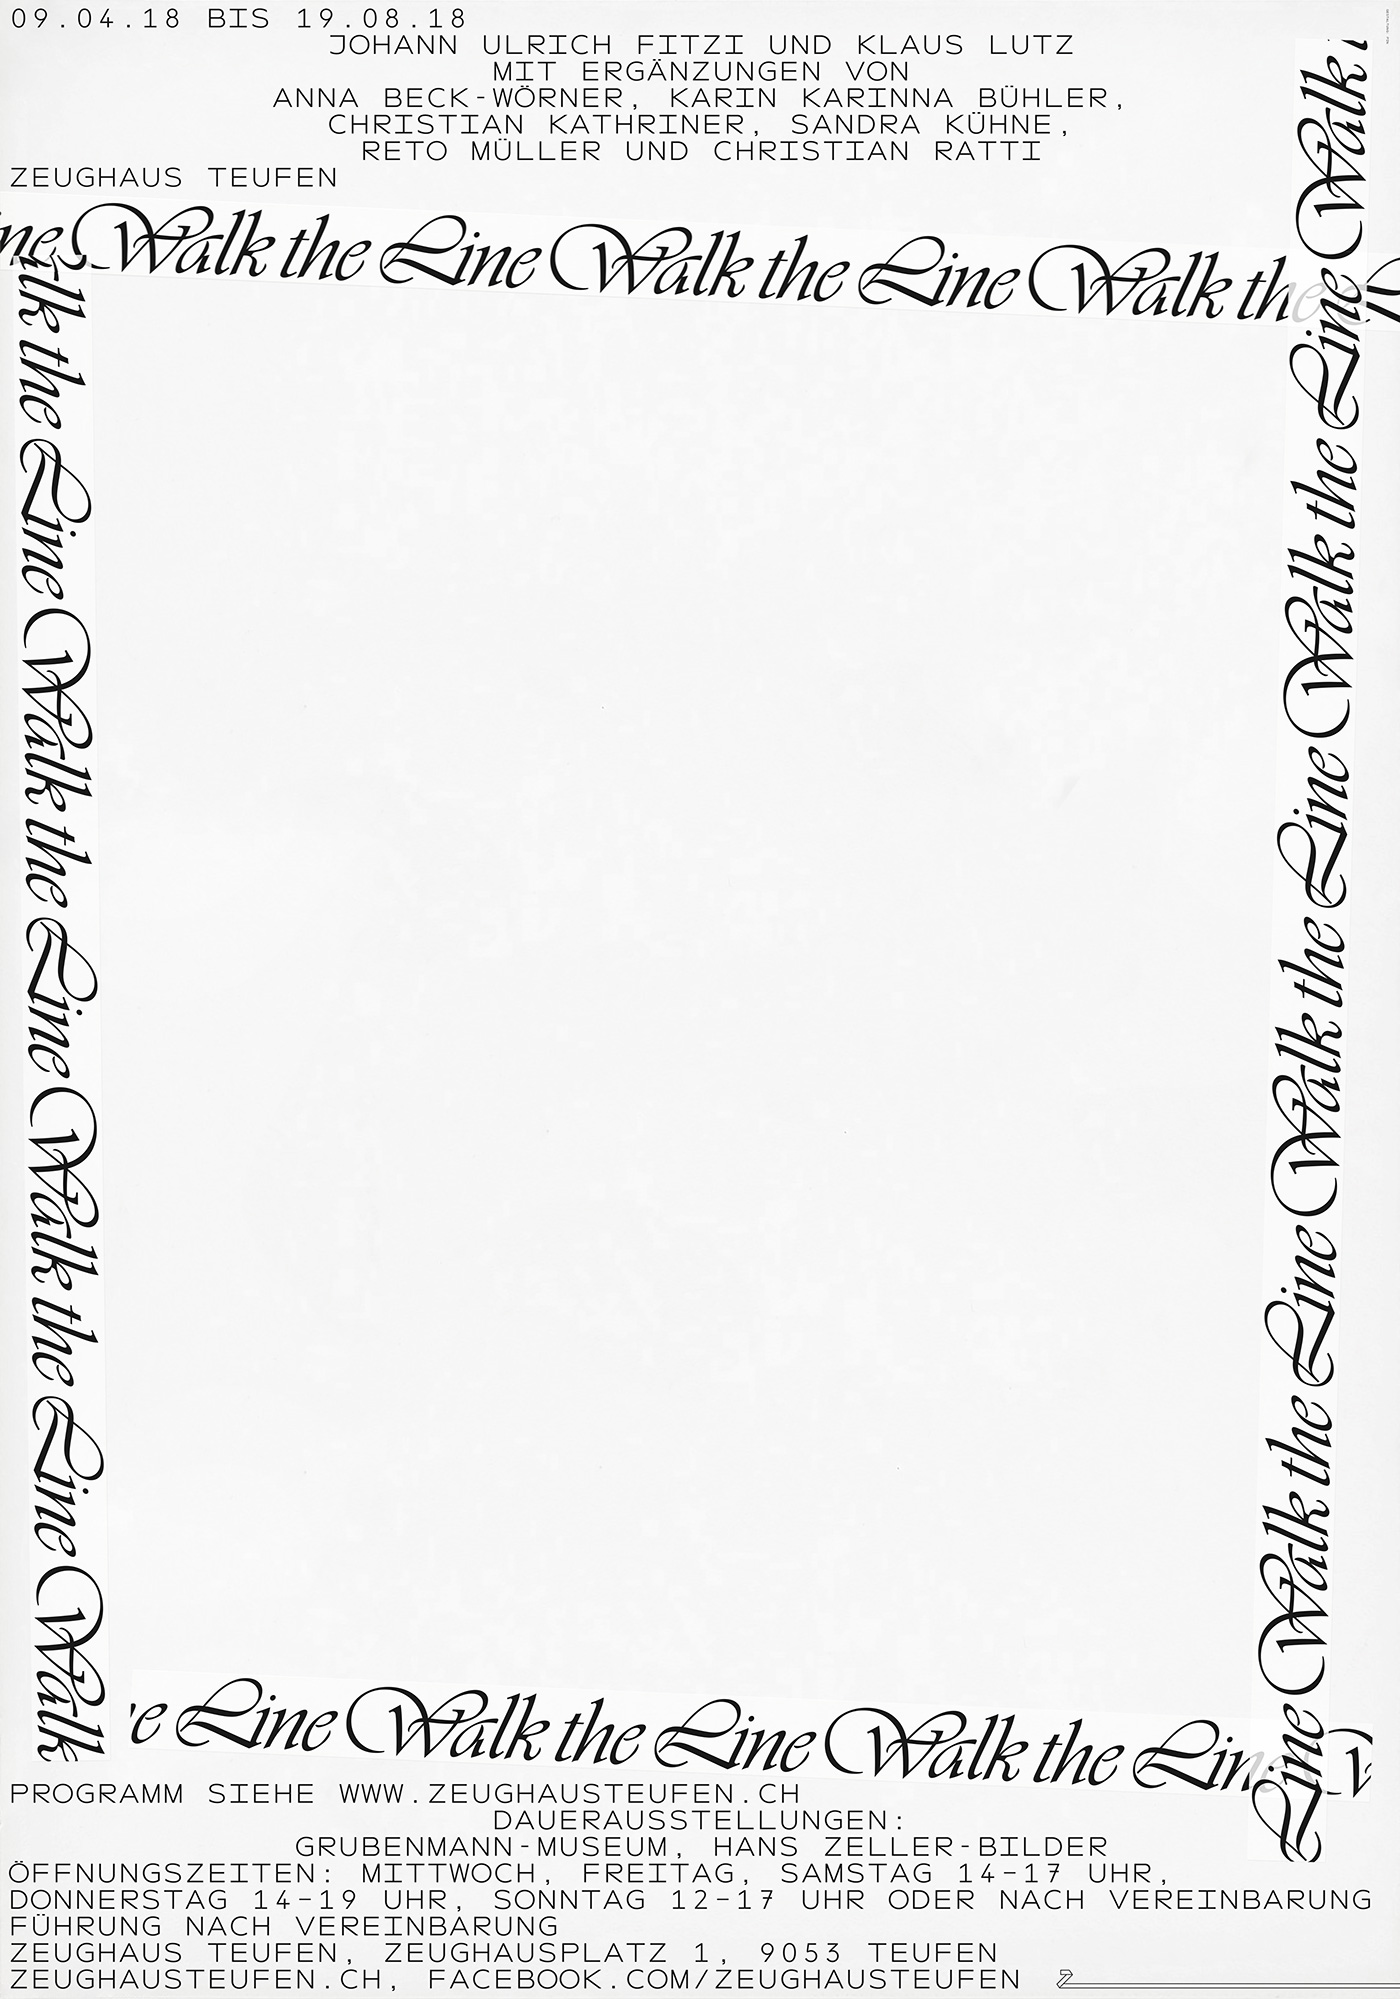 09.04.18 BIS 19.08.18
JOHANN ULRICH FITZI UND KLAUS LUTZ
MIT ERGÄNZUNGEN VON
ANNA BECK-WÖRNER, KARIN KARINNA BÜHLER,
CHRISTIAN KATHRINER, SANDRA KÜHNE,
RETO MÜLLER UND CHRISTIAN RATTI
ZEUGHAUS TEUFEN
ine Walk the Line Walk the Line Walk the L
alk the Line Walk the Line Walk the Line Walk
Line Walk the Line Walk the Line Walk the Line Walk
e Line Walk the Line Walk the Line W
PROGRAMM SIEHE WWW.ZEUGHAUSTEUFEN.CH
DAUERAUSSTELLUNGEN:
GRUBENMANN-MUSEUM, HANS ZELLER-BILDER
ÖFFNUNGSZEITEN: MITTWOCH, FREITAG, SAMSTAG 14–17 UHR,
DONNERSTAG 14–19 UHR, SONNTAG 12–17 UHR ODER NACH VEREINBARUNG
FÜHRUNG NACH VEREINBARUNG
ZEUGHAUS TEUFEN, ZEUGHAUSPLATZ 1, 9053 TEUFEN
ZEUGHAUSTEUFEN.CH, FACEBOOK.COM/ZEUGHAUSTEUFEN